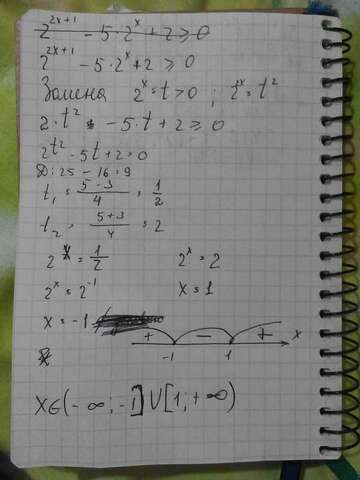 2^{2x+1} - 5·2^x + 2 ≥ 0
2^{2x+1} - 5·2^x + 2 ≥ 0
Замена 2^x = t > 0 ; 2^{2x} = t^2
2·t^2 - 5·t + 2 ≥ 0
2t^2 - 5t + 2 = 0
D: 25 - 16 = 9
t_1 = \frac{5-3}{4} = \frac{1}{2}
t_2 = \frac{5+3}{4} = 2
2^x = \frac{1}{2} 2^x = 2
2^x = 2^{-1} x = 1
x = -1
+ - + x
-1 1
X∈(-∞; -1] U [1; +∞)